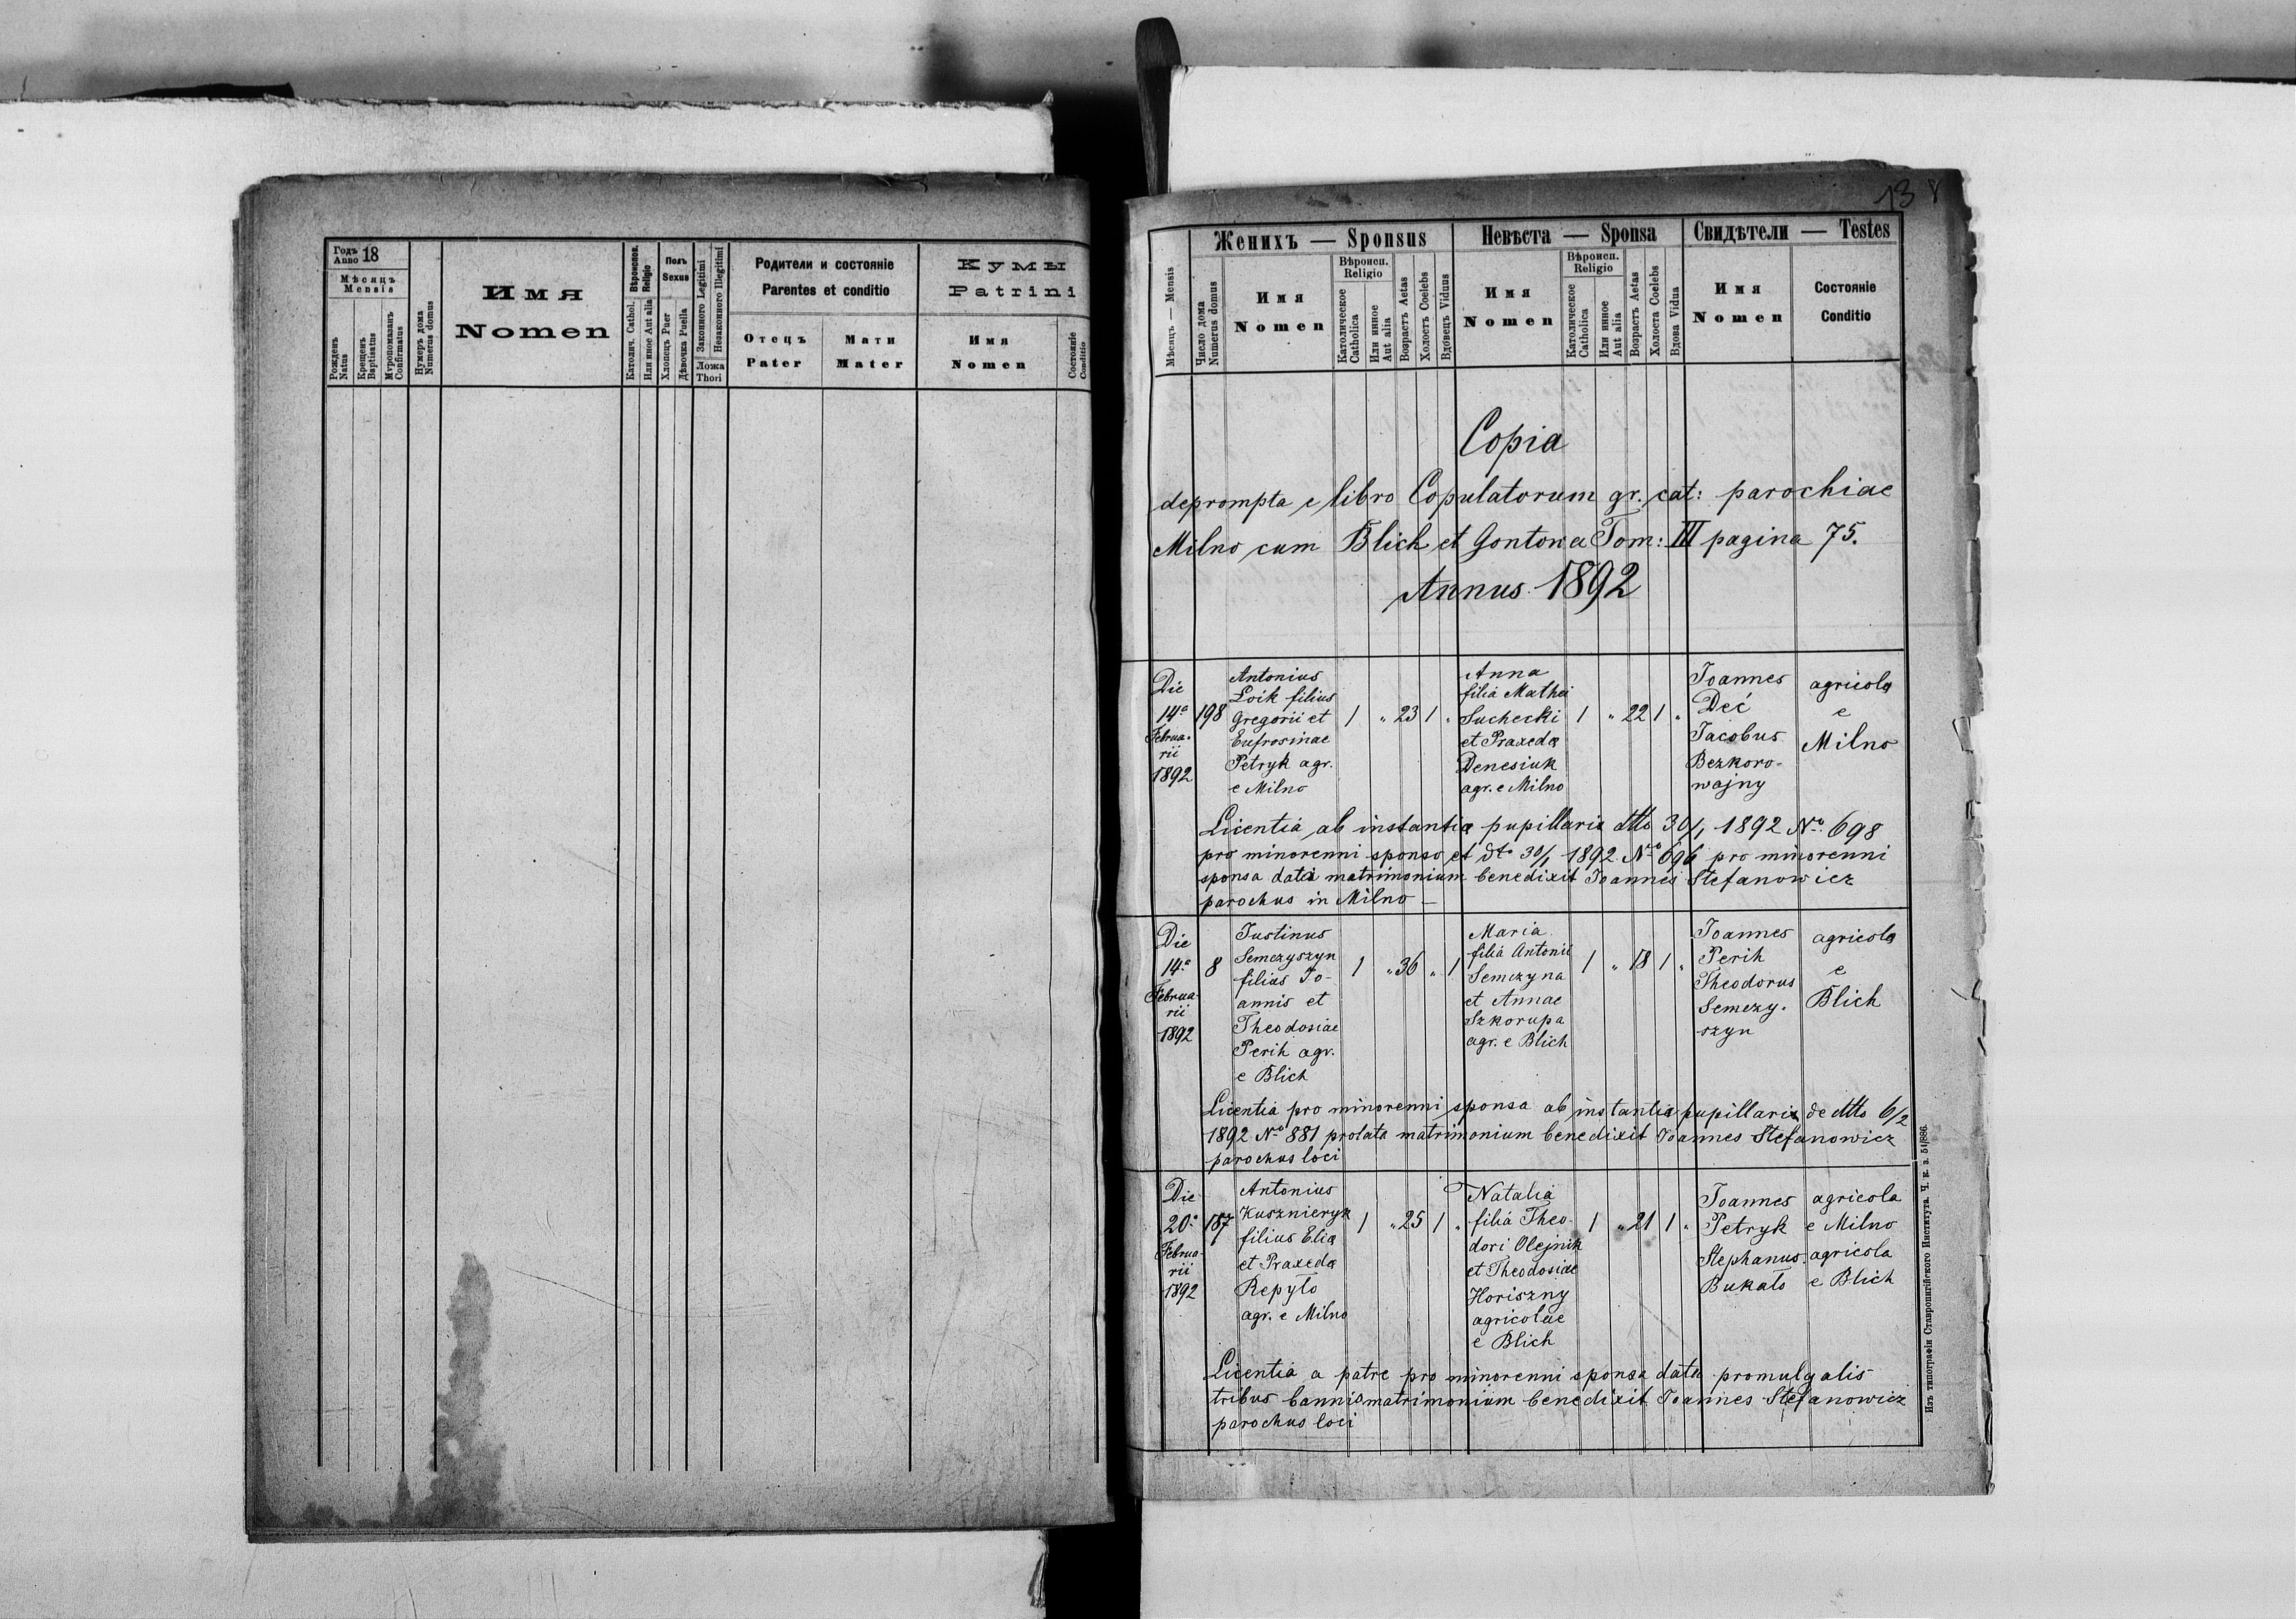 Годъ Anno 18
Мѣсяцъ
Mensis
Рожденъ Natus
Крещенъ Baptisatus
Муропомазанъ Confirmatus
Нумеръ дома Numerus domus
Имя
Nomen
Вѣроиспов. Religio
Католич. Cathol.
Или иное Aut alia
Полъ
Sexus
Хлопецъ Puer
Дѣвочка Puella
Законного Legitimi
Незаконного Illegitimi
Ложа
Thori
Родители и состояніе
Parentes et conditio
Отецъ
Pater
Мати
Mater
Кумы
Patrini
Имя
Nomen
Состояніе Conditio
13
Мѣсяцъ — Mensis
Число дома Numerus domus
Женихъ — Sponsus
Имя
Nomen
Вѣроисп.
Religio
Католическое Catholica
Или инное Aut alia
Возрастъ Aetas
Холостъ Coelebs
Вдовецъ Viduus
Невѣста — Sponsa
Имя
Nomen
Вѣроисп.
Religio
Католическое Catholica
Или инное Aut alia
Возрастъ Aetas
Холоста Coelebs
Вдова Vidua
Свидѣтели — Testes
Имя
Nomen
Состояніе
Conditio
Copia
deprompta e libro Copulatorum gr. cat: parochiae
Milno cum Blich et Gontowa Tom: III pagina 75.
Annus 1892
Die
14ª
Februa-
rii
1892
198
Antonius
Loik filius
Gregorii et
Eufrosinae
Petryk agr.
e Milno
1 " 23 1 "
Anna
filia Mathei
Suchecki
et Praxeda
Denesiuk
agr. e Milno
1 " 22 1 "
Joannes
Deć
Jacobus
Bezkoro-
wajny
agricola
e
Milno
Licentia ab instantia pupillaris dtto 30/1 1892 Nº 698
pro minorenni sponso et dtº 30/1 1892 Nº 696 pro minorenni
sponsa data matrimonium benedixit Joannes Stefanowicz
parochus in Milno —
Die
14ª
Februa-
rii
1892
8
Justinus
Semczyszyn
filius Jo-
annis et
Theodosiae
Perih agr.
e Blich
1 " 36 " 1
Maria
filia Antonii
Semczyna
et Annae
Szkorupa
agr. e Blich
1 " 18 1 "
Joannes
Perih
Theodorus
Semczy-
szyn
agricola
e
Blich
Licentia pro minorenni sponsa ab instantia pupillaris de dtto 6/2
1892 Nº 881 prolata matrimonium benedixit Joannes Stefanowicz
parochus loci
Die
20ª
Februa-
rii
1892
187
Antonius
Kusznieryk
filius Elia
et Praxeda
Repyto
agr. e Milno
1 " 25 1 "
Natalia
filia Theo-
dori Olejnik
et Theodosiae
Horiszny
agricolae
e Blich
1 " 21 1 "
Joannes
Petryk
Stephanus
Bukało
agricola
e Milno
agricola
e Blich
Licentia a patre pro minorenni sponsa data promulgatis
tribus bannis matrimonium benedixit Joannes Stefanowicz
parochus loci
Изъ типографіи Ставропигійского Института. Ч. к. з. 51/886.